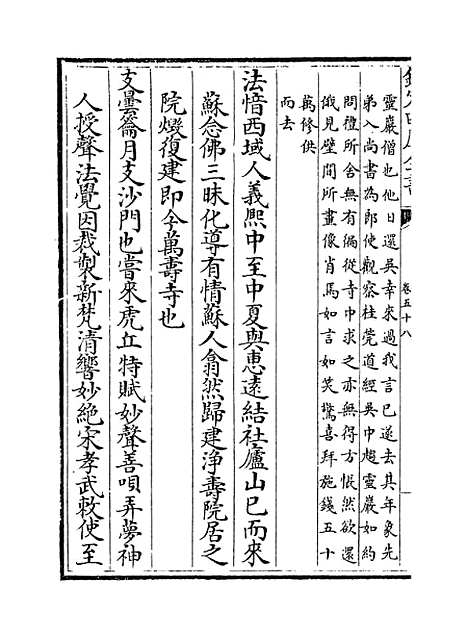 靈巖僧也他日還吳幸來過我言已遂去其年象先
弟入尚書為郎使觀察桂筦道經吳中趨靈巖如約
問禮所舍無有徧從寺中求之亦無得方悵然欲還
俄見壁間所畫像肖焉如言如笑驚喜拜施錢五十
萬修供
而去
法愔西域人義熙中至中夏與惠遠結社廬山已而來
蘇念佛三昧化導有情蘇人翕然歸建淨壽院居之
院燬復建即今萬壽寺也
支曇籥月支沙門也嘗來虎丘特賦妙聲善唄弄夢神
人授聲法覺因裁製新梵清響妙絕宋孝武敕使至
卷五十八